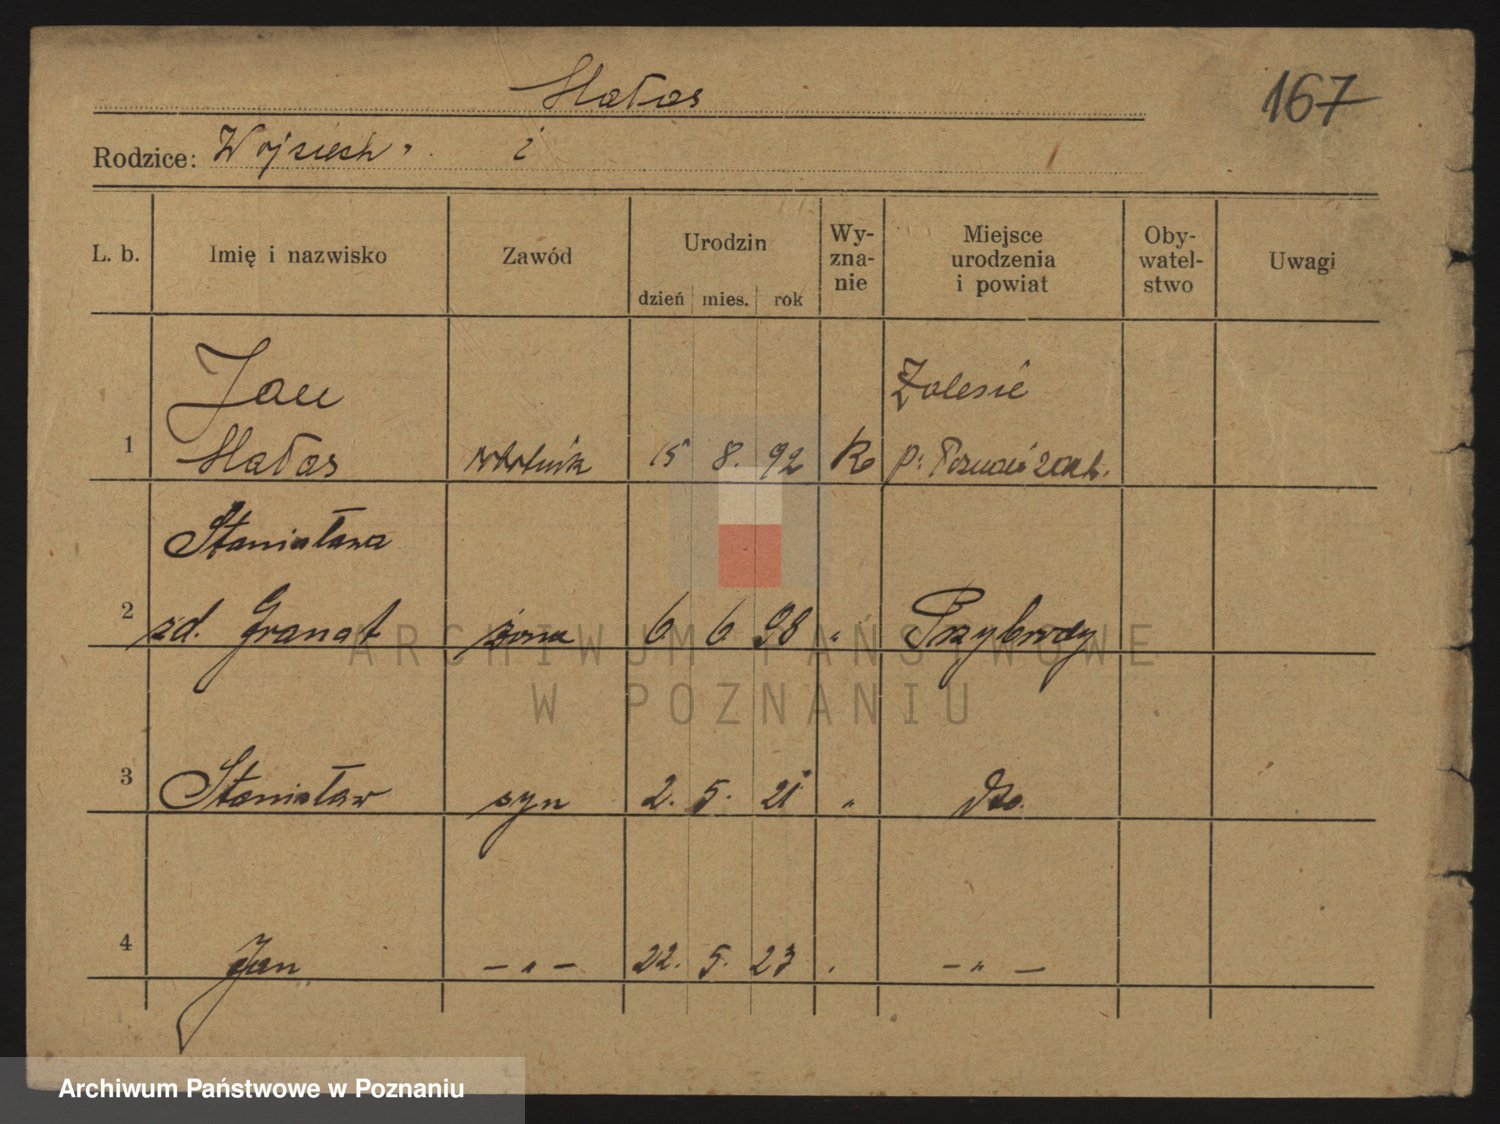 Hałas
167
Rodzice: Wojciech i
L. b. Imię i nazwisko Zawód Urodzin dzień mies. rok Wy-zna-nie Miejsce urodzenia i powiat Oby-watel-stwo Uwagi
Jan Zalesie
1 Hałas robotnik 15 8. 92 Rz p. Poznań zach.
Stanisława
2 zd. Granat żona 6 6 98 „ Przybrody
3 Stanisław syn 2. 5. 21 „ dto.
4 Jan — „ — 22. 5. 23 „ — „ —
ARCHIWUM PAŃSTWOWE
W POZNANIU
Archiwum Państwowe w Poznaniu